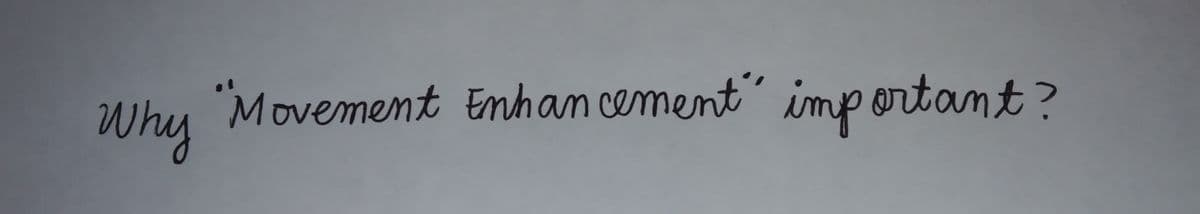 Why "Movement Enhancement" important?